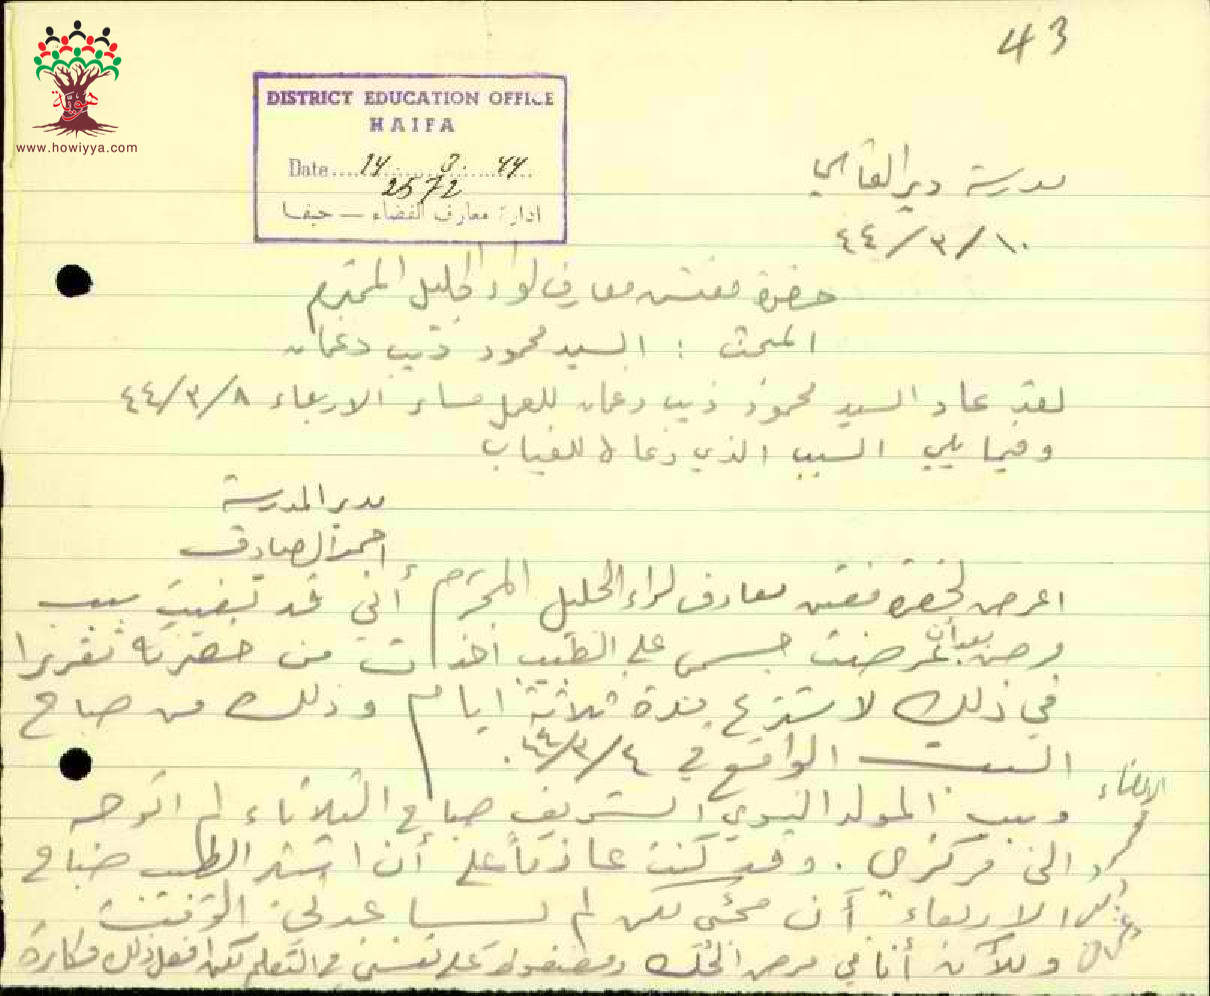 43
هوية
www.howiyya.com
DISTRICT EDUCATION OFFICE
HAIFA
Date....14......3.......44....
2572
ادارة معارف القضاء — حيفا
مدرسة دير القاسي
١٠/٣/٤٤
حضرة مفتش معارف لواء الجليل المحترم
المبحث : السيد محمود ذيب دغمان
لقد عاد السيد محمود ذيب دغمان للعمل مساء الاربعاء ٤٤/٣/٨
وفيما يلي السبب الذي دعاه للغياب
مدير المدرسة
احمد الصادق
اعرض لحضرة مفتش معارف لواء الجليل المحترم أنني قد تغيبت بسبب
مرض بعد أن عرضت جسمي على الطبيب أخذت من حضرته تقريرا
في ذلك لاستريح مدة ثلاثة ايام وذلك من صباح
السبت الواقع في ٤٤/٣/٤.
وبسبب المولد النبوي الشريف صباح الثلاثاء لم اتوجه
الى مركزي. وقد كنت عازما على أن الطبيب صباح
الاربعاء أن لكن لم
وللآن أنا في مرض على نفسي في التعلم لكن افعل ذلك
الامضاء